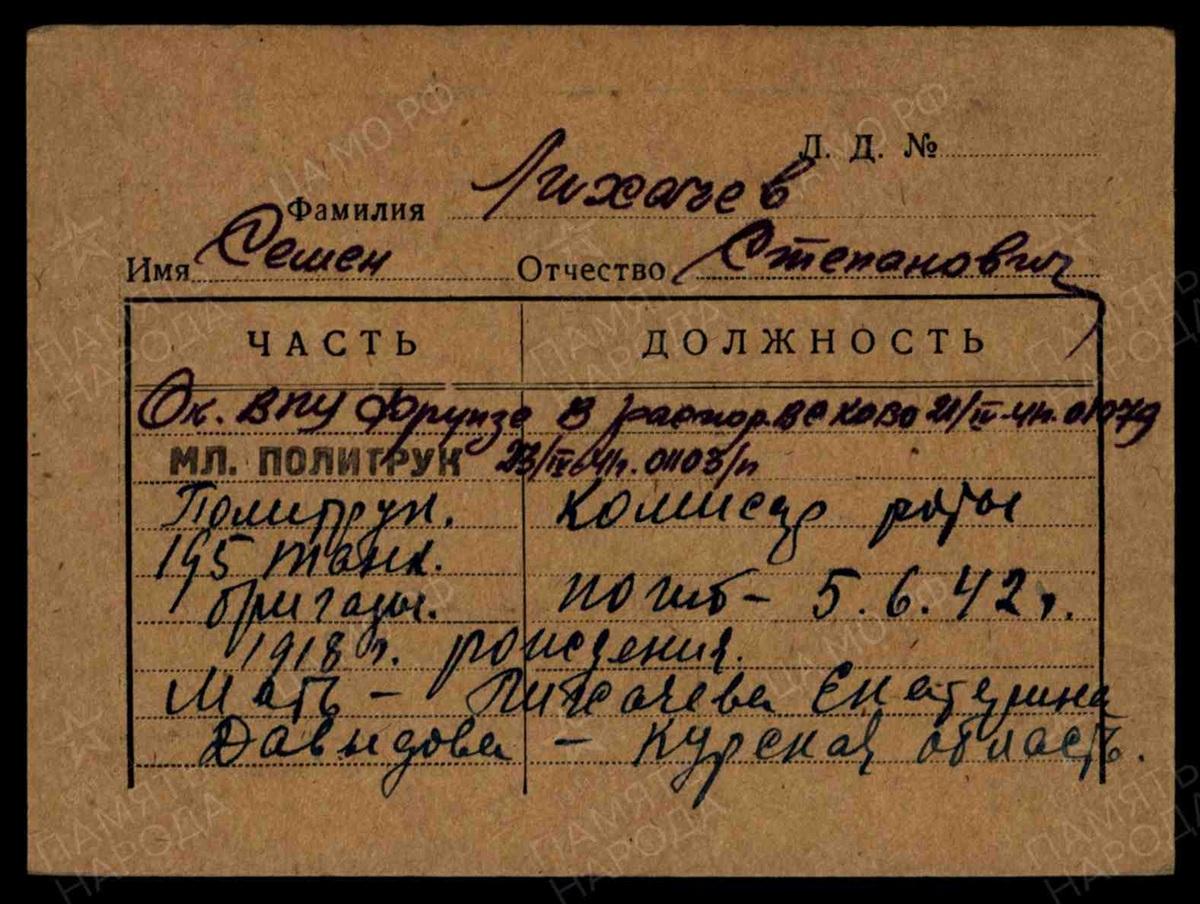 Л. Д. №
Фамилия Лихачев
Имя Семен Отчество Степанович
ЧАСТЬ ДОЛЖНОСТЬ
Ок. ВПУ Фрунзе В распор. ВС КОВО 21/IV-41г. 01079
МЛ. ПОЛИТРУК 23/IV-41г. 0103/п
Политрук. Комиссар роты
195 танк.
бригады. погиб - 5.6.42г.
1918 г. рождения.
Мать - Лихачева Екатерина
Давыдова - Курская область.
ЦА МО РФ
ПАМЯТЬ НАРОДА